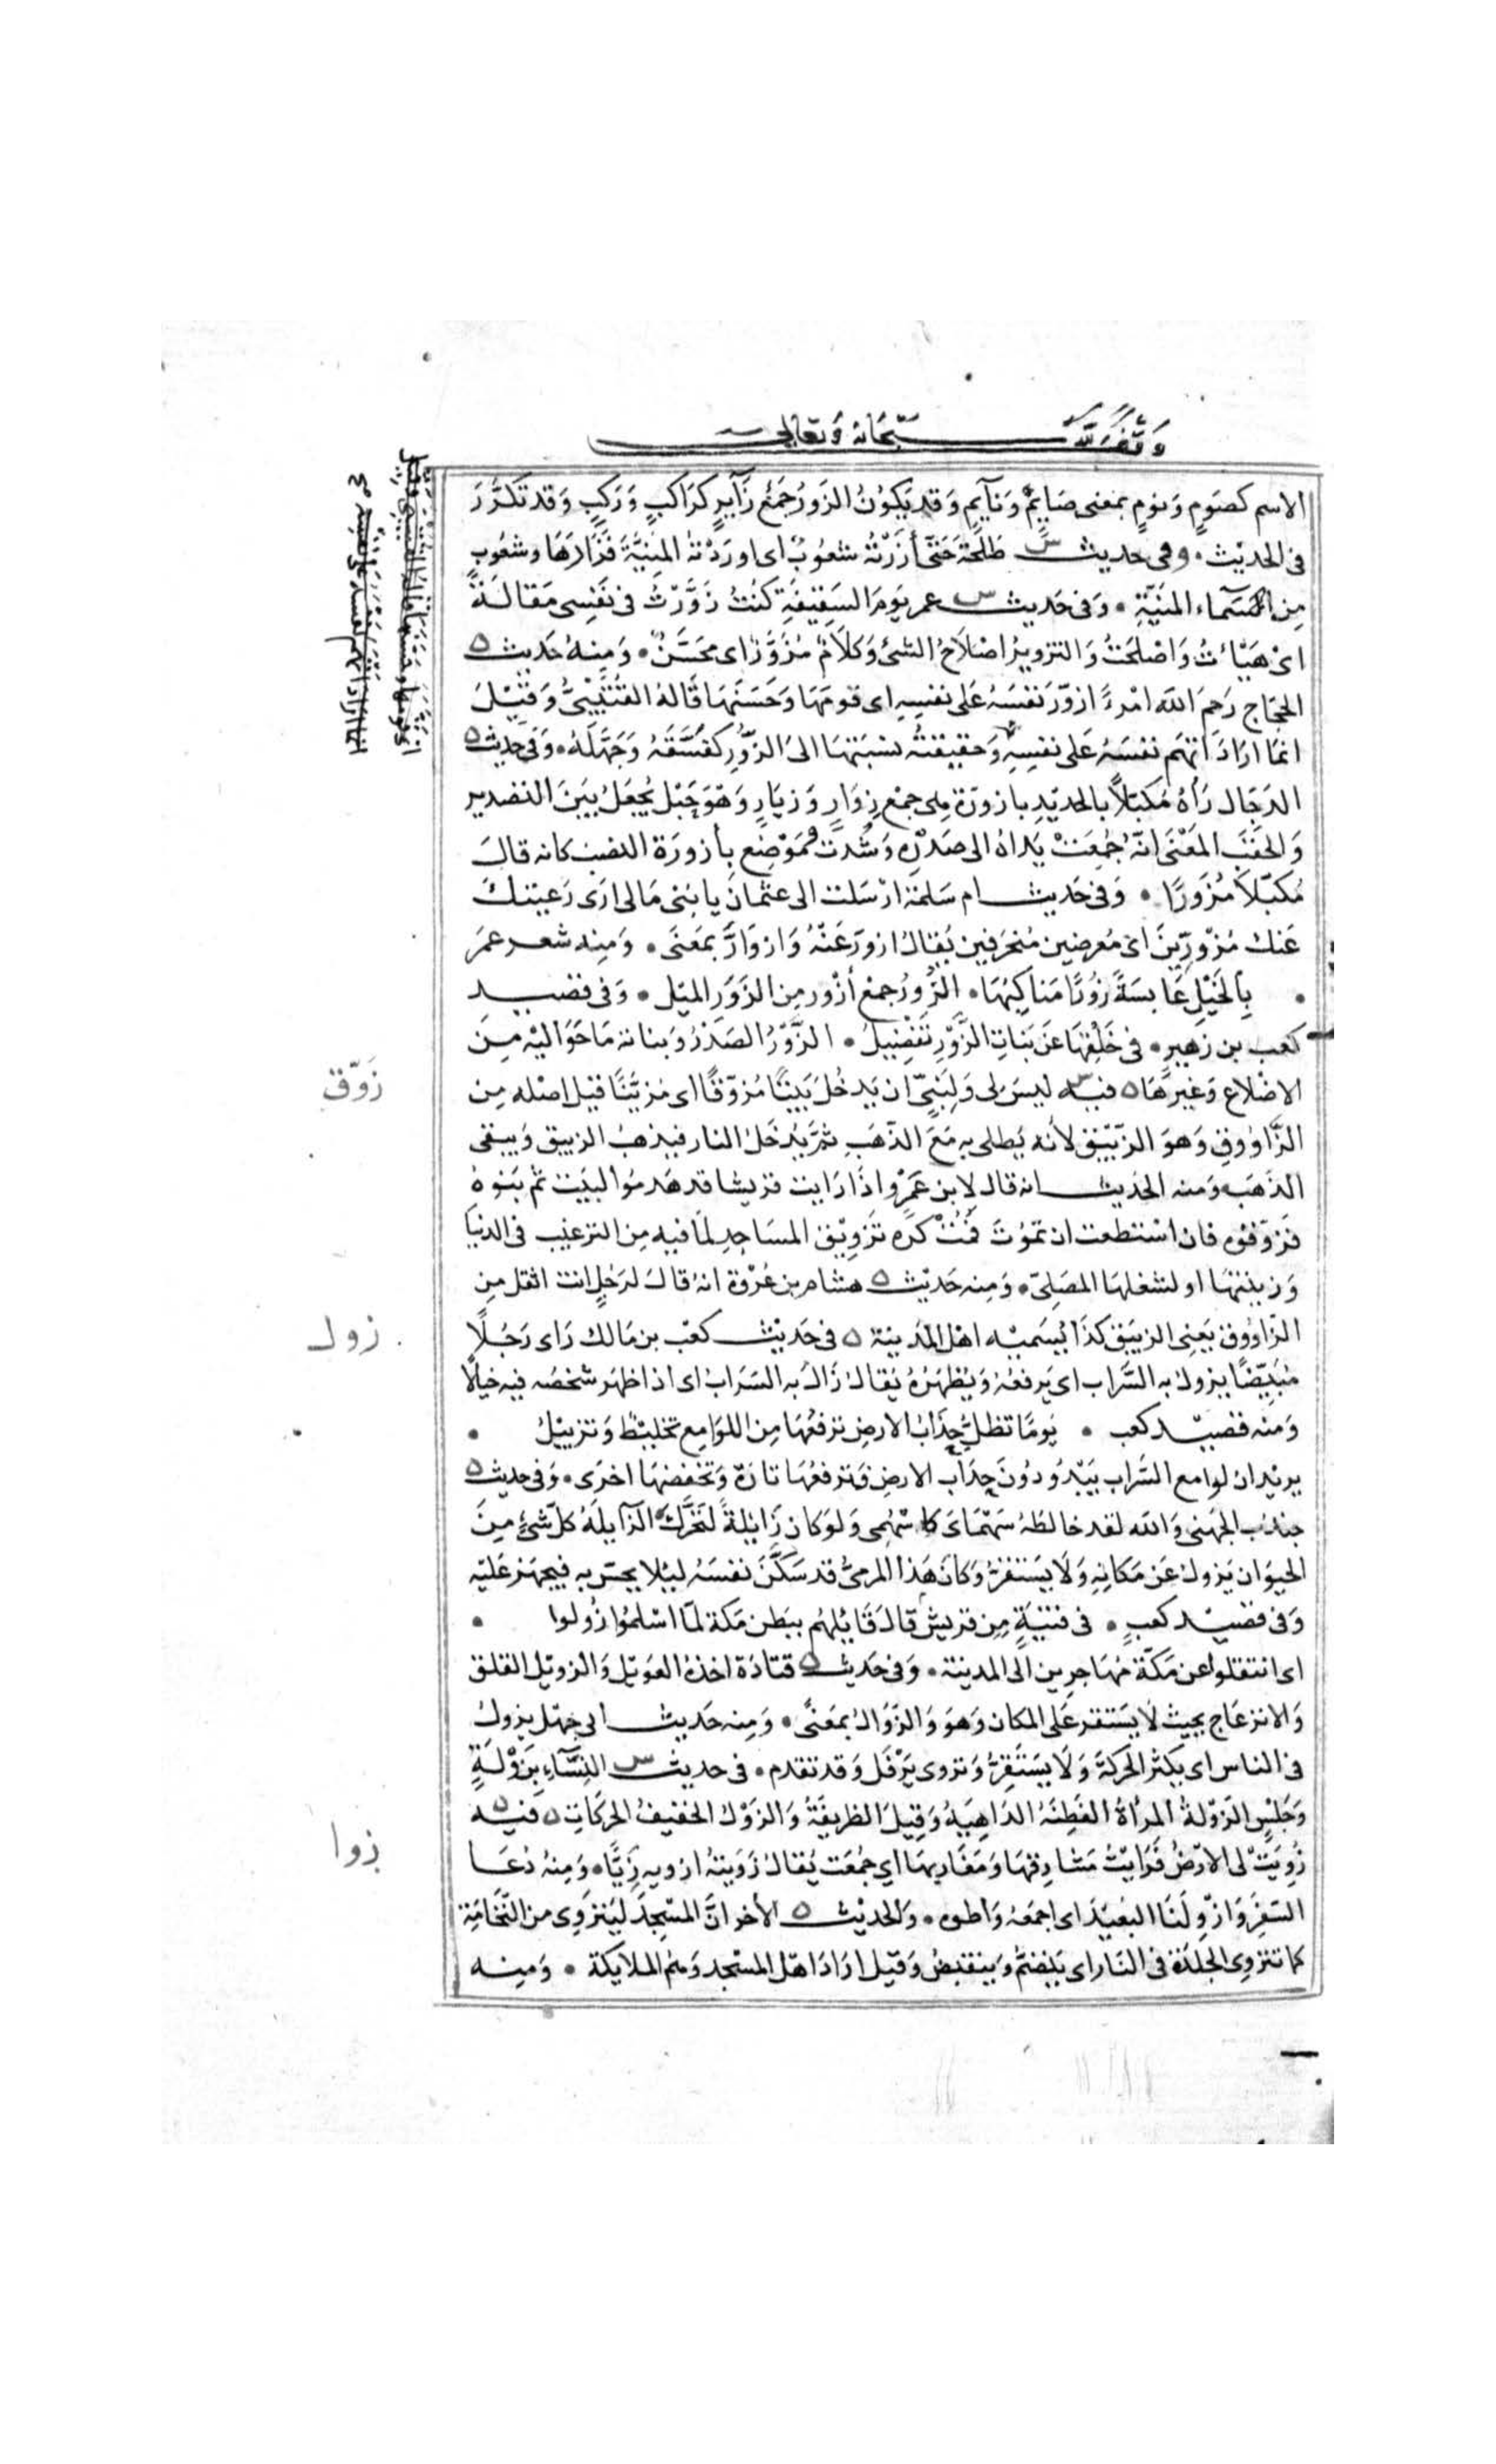 وقف لله سبحانه وتعالى
الاسم كصَومٍ وَنومٍ بمعنى صَايِمٍ وَنَآيمٍ وَقد يَكوُنُ الزَورُ جَمْعُ زَآيرٍ كرَاكبٍ وَرَكبٍ وَقد تكرَّرَ
فى الحديْث • وفى حديث س طَلْحَةَ حَتىَّ أزَرْتهُ شعُوبُ اى اورَدْتهُ المنيَّةَ فَزَارَهَا وشعُوب
مِن اسمَآء المنيَّةِ • وَفى حَديث س عمر يَومَ السَقِيفَةِ كنْتُ زَوَّرْتُ فى نَفسِى مَقالةً
اىْ هَيَّاتُ وَاصْلحَتُ وَالتزويرُ اصْلاَحُ الشئ وَكلاَمٌ مُزَوَّرٌ اى محَسَّنٌ • وَمِنهُ حَديث ٥
الحجّاج رَحِمَ اللهَ امْرءً ازوّرَ نفسَهُ عَلى نفسِهِ اى قومَهَا وَحَسَنَهَا قَالهُ القُتَيْبىُّ وَقيْلَ
انمَا ارَادَ اتهَم نفسَهُ عَلى نفسِهِ وَحقيقتُه نسْبَتهَا الىَ الزُّورِ كفَسَّقَهُ وَجَهَّلَهُ • وَفى حديث ٥
الدَجّال رَأهُ مُكبَّلاً بالحدِيْدِ بازورَة هِى جمْع زِوَارٍ وَزيَارٍ وَهُوَ حَبْل يُجعَلُ بَيَنَ التصْدير
وَالحقَبَ المَعْنَى انهُ جُمِعَتْ يَدَاهُ الى صَدْرِهِ وَشُدَّتْ وَمَوْضِع بِأزورَة النصب كانه قالَ
مُكبّلاً مُزَورًا • وَفى حَديث ام سَلمَة ارْسَلت الى عثمانَ يا بُنى مَالى ارَى رَعيتكَ
عَنك مُزْوَرِّينَ اىْ مُعرضِين مُنحَرفين يُقالُ ازورَّ عَنْهُ وَازوَارَّ بمَعنَى • وَمِنه شعر عمَرَ
• بِالخيْلِ عَابسَةً زُورًا مَناكِبُهَا • الزُورُ جمع أزْور مِن الزَوَرِ الميْل • وَفى قصيد
كعب بن زهيرٍ • فى خَلْقِهَا عَن بَناتِ الزَّوْرِ تَفْضِيلُ • الزَّوْرُ الصَدْرُ وَبناته مَا حَوَاليْه مِنَ
الاضْلاع وَغيرهَا ٥ فيه س ليسَ لى وَلِنَبِىّ ان يَدخُلَ بَيتًا مُزوّقًا اى مُزيَّنًا قيل اصْله مِن
الزَّاوُوقِ وَهوَ الزّيْبَق لأنه يُطلى بهِ مَعَ الذَهَبِ ثمَّ يُدْخَلُ النار فيذهبُ الزيبق وَيبقى
الذَهَب وَمنه الحَديث انه قال لاِبن عَمْرٍو اذَا رَايت قرَيشا قد هَدمُوا البَيت ثم بَنوهُ
فزَوّقوه فان اسْتطعت ان تمُوتَ فمُتْ كرِهَ تَزوِيْق المسَاجِدِ لمَا فيه مِن الترغيْب فى الدنيَا
وَزينتهَا او لشغلهَا المصَلِىّ • وَمِنه حَديث ٥ هشام بن عُرْوَة انهُ قالَ لرَجُلٍ انت اثقل مِن
الزَاوُوق يَعنِى الزيبَق كذَا يُسَمِّيه اهل المَدينة ٥ فى حَديْث كعْب بن مَالك رَاى رَجُلًا
مُبَيِّضًا يزولُ به السَّراب اى يَرفعُهُ وَيُظهرُهُ يُقالُ زَالَ به السَرَابُ اى اذا ظهَر شخصُه فيه خيالًا
وَمنه قصيد كعب • يَومًا تظلُّ حِدَابُ الارضِ ترفعُهَا مِن اللوَامِع تخليْطٌ وَتزييْلُ •
يريْدُ ان لوامع السَّرابِ يَبْدُو دُونَ حِدَاب الارضِ فترفعُهَا تارَةً وَتخفضهَا اخرَى • وَفى حديث ٥
جندُب الجهَنى وَالله لقد خالطَهُ سَهْمَاىَ وَلوكان زَايلةً لتحَّرك الزَآيلَهُ كلّ شئٍ مِنَ
الحيَوان يَزولُ عَن مَكانهِ وَلاَ يَستقرُّ وَكان هَذا المرمىُّ قد سَكَّنَ نفسَهُ ليلا يحسّ به فيجهَز عَليْه
وَفى قصيد كعبٍ • فى فتيَةٍ مِن قريش قالَ قَايلهُم ببَطن مَكة لمّا اسْلمُوا زُولوا •
اى انتقلوا عن مَكَّة مُهَاجرين الَى المدينة • وَفى حَديث ٥ قتادَة اخذهُ العَويْل وَالزويْل القلق
وَالانزعَاج بحيث لاَ يَستقر عَلى المكان وَهوَ وَالزَوَالُ بمَعنًى • وَمِنه حَديث ابى جهْل يزولُ
فى الناس اى يكثر الحركةَ وَلاَ يَستَقِرُّ وَتروى يَرْفُل وَقد تقدم • فى حديث س النِسَآء بِزَوْلَةٍ
وَجَلْسٍ الزَوْلةُ المرأةُ الفَطِنَهُ الدَاهِيَهُ وَقيلَ الظريفَةُ وَالزوْلُ الخفيفُ الحركَاتِ ٥ فيه ٥
زُويَتْ لى الاَرضُ فَرَايْتُ مَشَارِقهَا وَمَغَاربهَا اي جُمعَت يُقالُ زَوَيْتهُ ازويهِ زَيًّا • وَمنهُ دُعَا
السَفرِ وَازْوِ لَنَا البَعيْدَ اى اجمَعْهُ وَاطوه • وَالحديْث ٥ الأخر انَّ المسْجِدَ ليَنزَوِى من النّخامَةِ
كما تنزوِى الجلدَة فى النَار اى يَنضَمُّ وَيَنقَبضُ وَقيل ارَادَ اهْل المسْجد وَهُم الملايكة • وَمنِه
زَوّق
زول
زوا